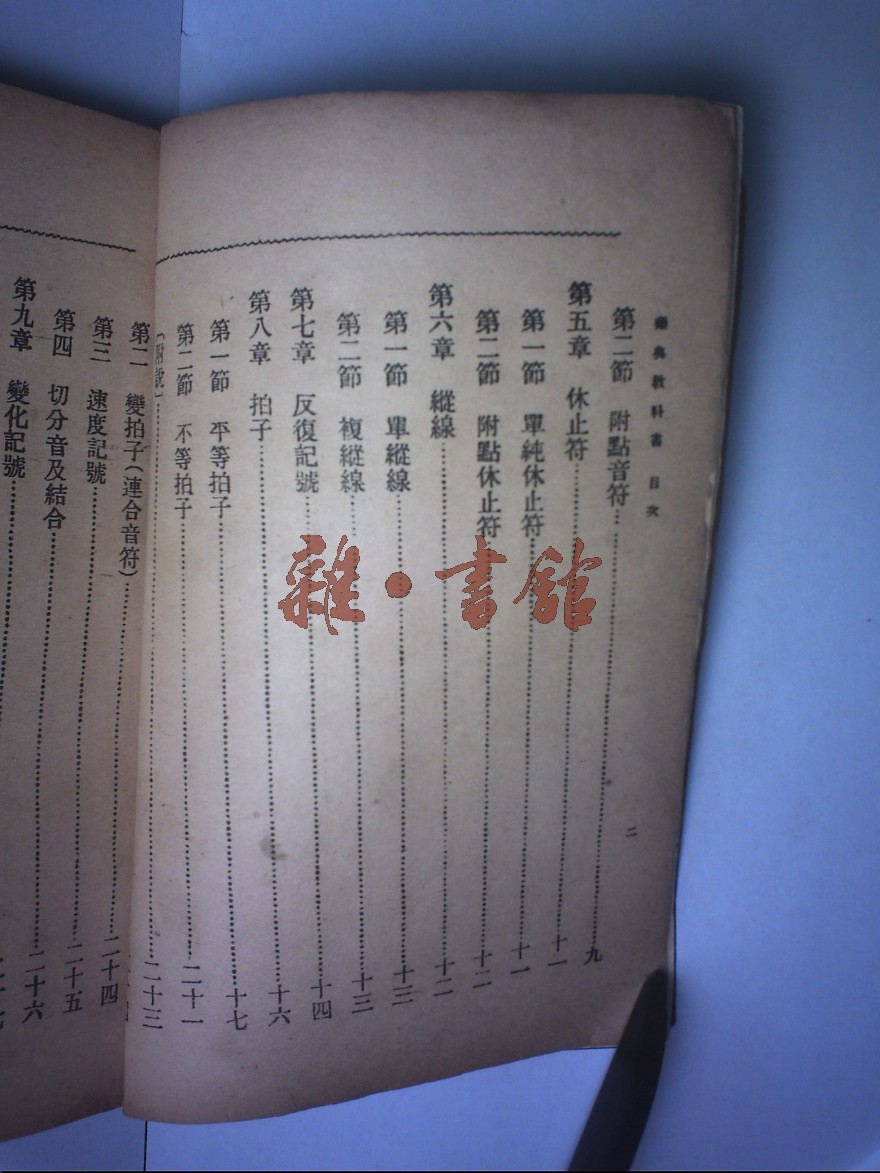 樂典教科書 目次
二
第二節 附點音符……九
第五章 休止符……十一
第一節 單純休止符……十一
第二節 附點休止符……十二
第六章 縱線……十二
第一節 單縱線……十三
第二節 複縱線……十三
第七章 反復記號……十四
第八章 拍子……十六
第一節 平等拍子……十七
第二節 不等拍子……二十一
(附說)……二十三
第二 變拍子(連合音符)……
第三 速度記號……二十四
第四 切分音及結合……二十五
第九章 變化記號……二十六
雜·書館